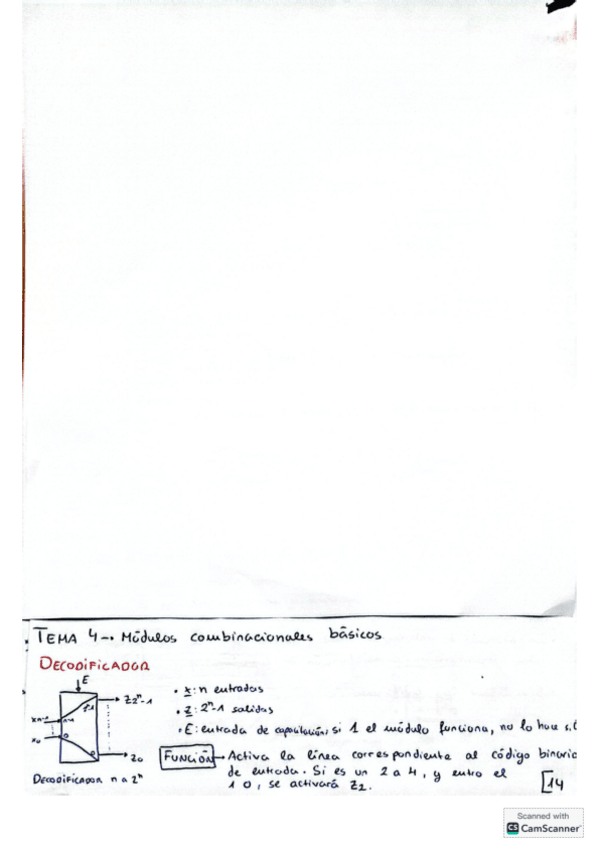 TEMA 4 → Módulos combinacionales básicos
DECODIFICADOR
E
xn-1
n-1
2ⁿ-1
z2ⁿ-1
x0
0
0
z0
DECODIFICADOR n a 2ⁿ
• x: n entradas
• z: 2ⁿ-1 salidas
• E: entrada de capacitación; si 1 el módulo funciona, no lo hace
FUNCIÓN → Activa la línea correspondiente al código binario
de entrada. Si es un 2 a 4, y entro el
1 0, se activará z2.
[14
Scanned with
CS CamScanner